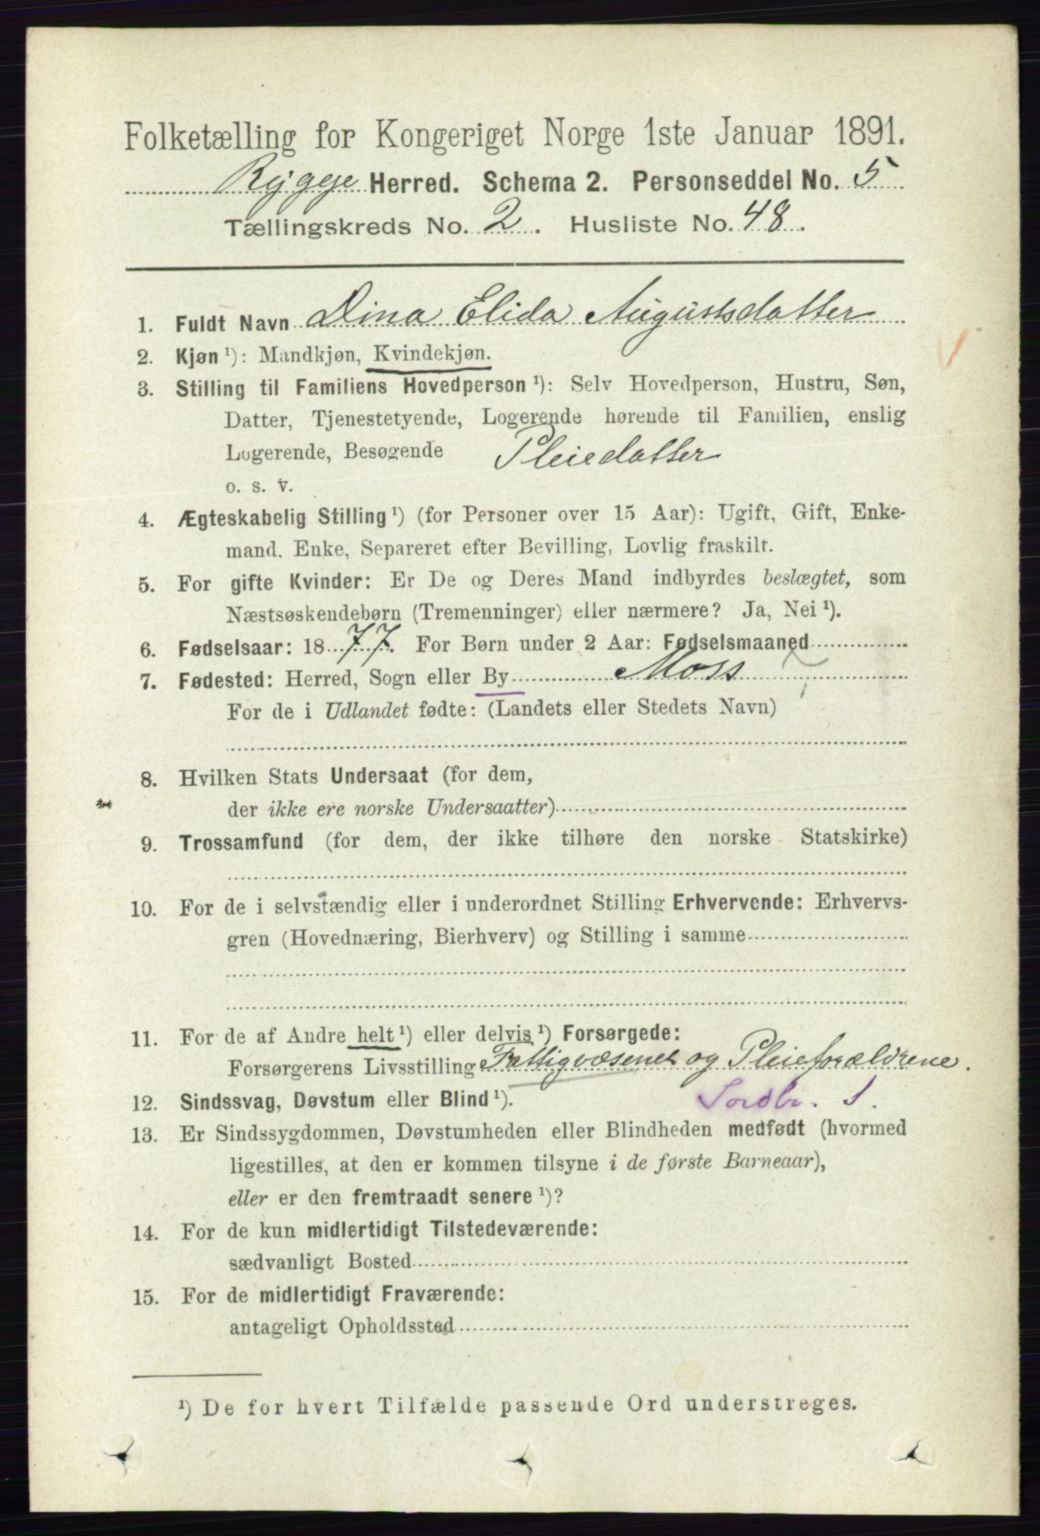 Folketælling for Kongeriget Norge 1ste Januar 1891.
Rygge Herred. Schema 2. Personseddel No. 5
Tællingskreds No. 2. Husliste No. 48.
1. Fuldt Navn Dina Elida Augustsdatter
2. Kjøn ¹): Mandkjøn, Kvindekjøn.
3. Stilling til Familiens Hovedperson ¹): Selv Hovedperson, Hustru, Søn,
Datter, Tjenestetyende, Logerende hørende til Familien, enslig
Logerende, Besøgende Pleiedatter
o. s. v.
4. Ægteskabelig Stilling ¹) (for Personer over 15 Aar): Ugift, Gift, Enke-
mand, Enke, Separeret efter Bevilling, Lovlig fraskilt.
5. For gifte Kvinder: Er De og Deres Mand indbyrdes beslægtet, som
Næstsøskendebørn (Tremenninger) eller nærmere? Ja, Nei ¹).
6. Fødselsaar: 1877. For Børn under 2 Aar: Fødselsmaaned
7. Fødested: Herred, Sogn eller By Moss
For de i Udlandet fødte: (Landets eller Stedets Navn)
8. Hvilken Stats Undersaat (for dem,
der ikke ere norske Undersaatter)
9. Trossamfund (for dem, der ikke tilhøre den norske Statskirke)
10. For de i selvstændig eller i underordnet Stilling Erhvervende: Erhvervs-
gren (Hovednæring, Bierhverv) og Stilling i samme
11. For de af Andre helt ¹) eller delvis ¹) Forsørgede:
Forsørgerens Livsstilling Fattigvæsenet og Pleieforældrene.
12. Sindssvag, Døvstum eller Blind ¹). S.
13. Er Sindssygdommen, Døvstumheden eller Blindheden medfødt (hvormed
ligestilles, at den er kommen tilsyne i de første Barneaar),
eller er den fremtraadt senere ¹)?
14. For de kun midlertidigt Tilstedeværende:
sædvanligt Bosted
15. For de midlertidigt Fraværende:
antageligt Opholdssted
¹) De for hvert Tilfælde passende Ord understreges.